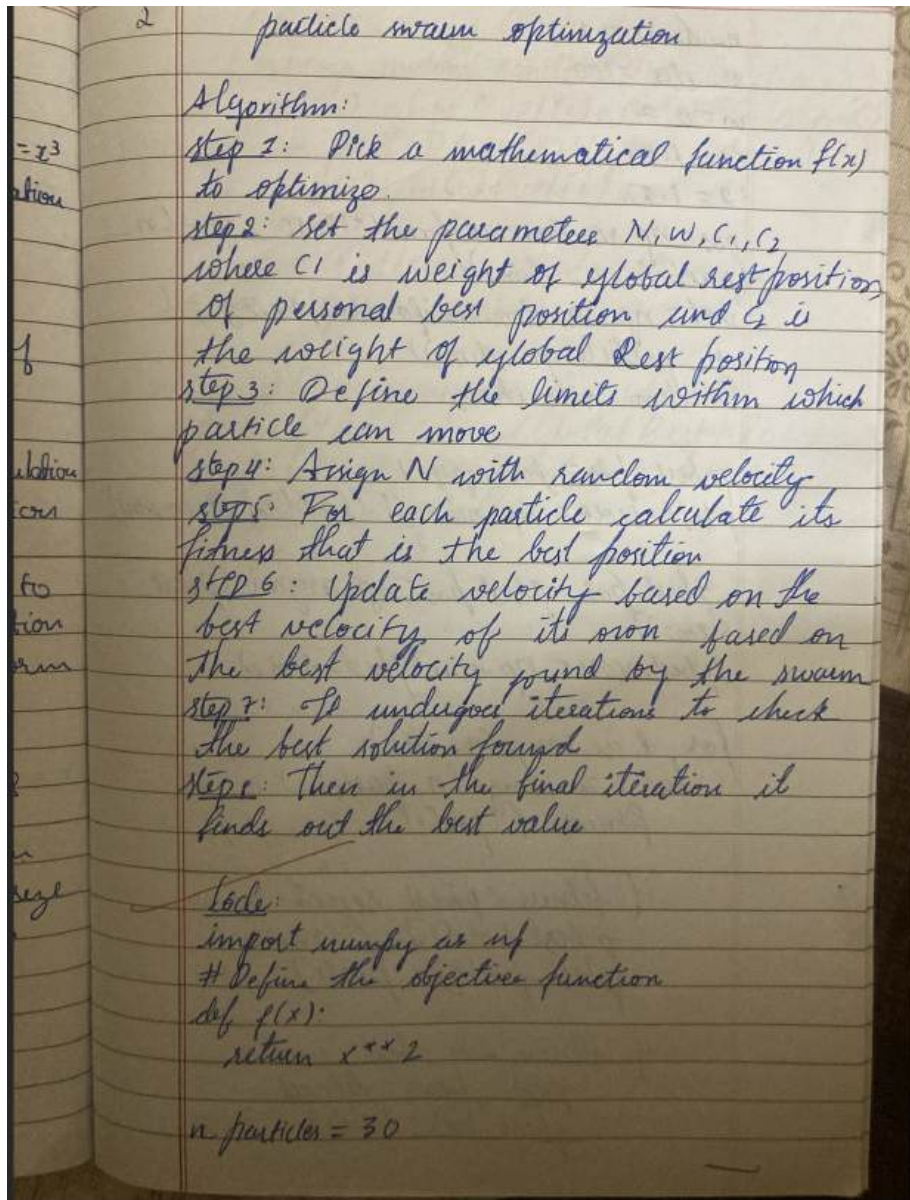 2
particle swarm optimization
Algorithm:
step 1: Pick a mathematical function f(x)
to optimize.
step 2: Set the parameters N, W, C1, C2
where C1 is weight of global rest position
of personal best position and C2 is
the weight of global Rest position
step 3: Define the limits within which
particle can move
step 4: Assign N with random velocity
step 5: For each particle calculate its
fitness that is the best position
step 6: Update velocity based on the
best velocity of its own based on
the best velocity found by the swarm
step 7: It undergoes iterations to check
the best solution found
step: Then in the final iteration it
finds out the best value
Code:
import numpy as np
# Define the objective function
def f(x):
return x**2
n particles = 30
= x³
ation
f
to
tion